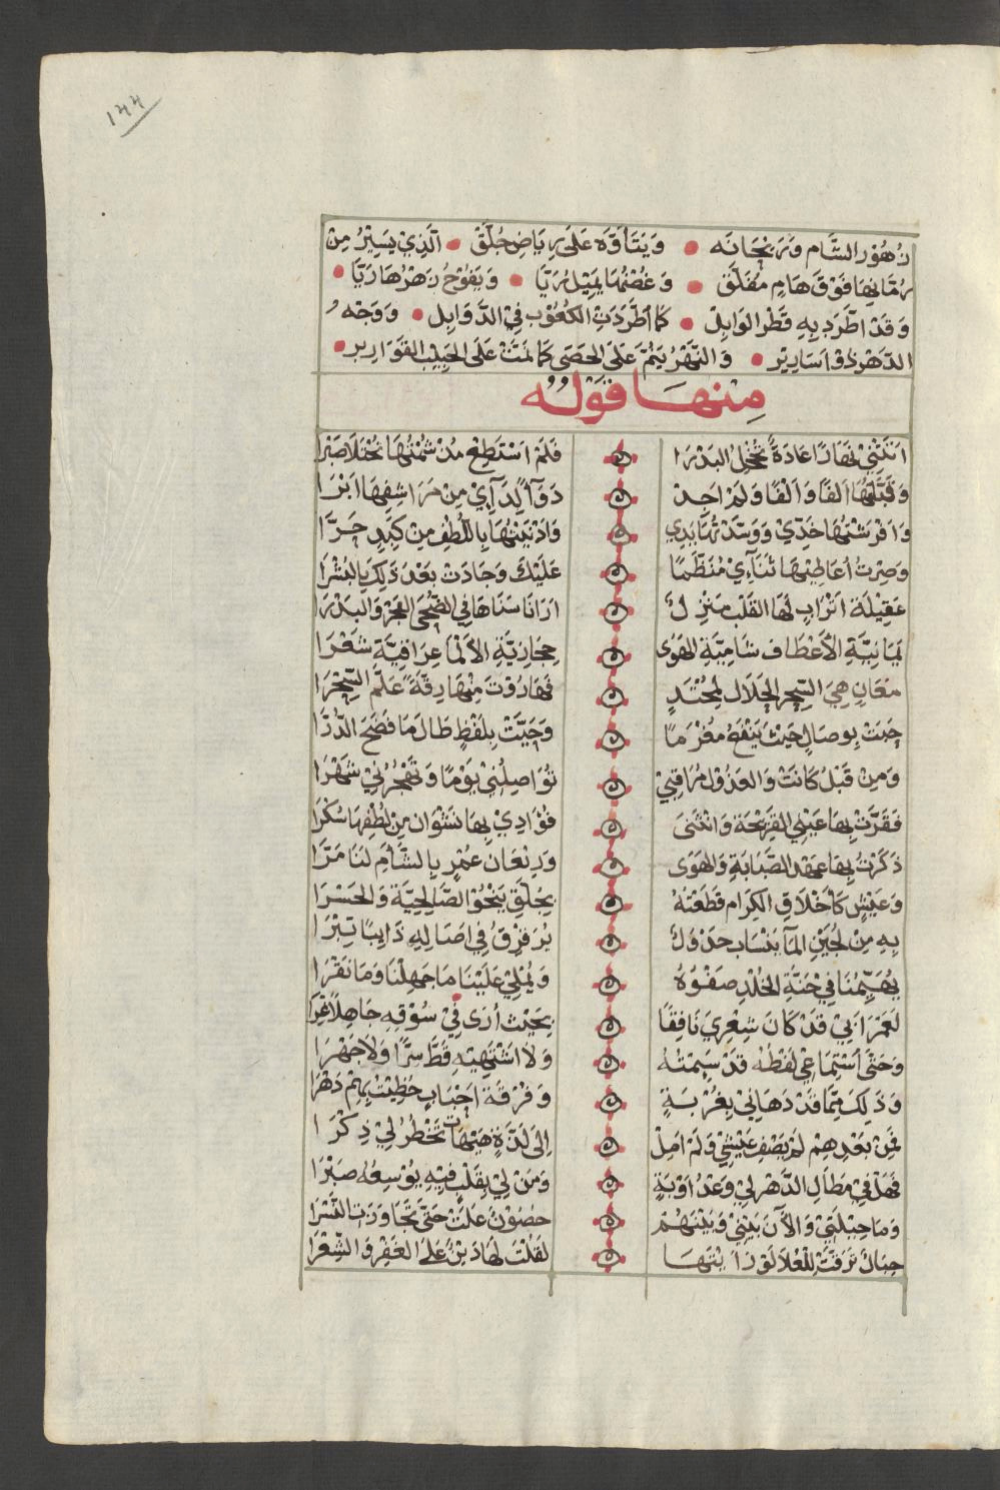 ١٤٤
زُهُوْرِ الشَّام وَرَيْحَانَه • وَيَتَأَوَّه عَلَى رِيَاضِ جِلَّقْ • الَّذِيْ يَسِيْرُ مِنْ
رُمَّانِهَا فَوْقَ هَامٍ مُفَلَّقْ • وَغُصْنُهَا يَمِيْلُ رَيَّا • وَيَفُوْحُ زَهْرُهَا رَيَّا •
وَقَدْ اطَّرَدَ بِهِ قَطْرُ الوَابِلْ • كَمَا اطَّرَدَتِ الكُعُوْبُ فِيْ الذَّوَابِلْ • وَوَجْهُ
الدَّهْرِ ذُوْ اَسَارِيْر • وَالنَّهْرُ يَنُمُّ عَلَى الحَصَى كَمَا نَمَّتْ عَلَى الحَبَبِ القَوَارِيرِ •
مِنْهَا قَوْلُه
اَتَتْنِيْ نَهَارًا غَادَةٌ تُخْجِلُ البَدْرَا فَلَمْ اَسْتَطِعْ مُذْ شُمْتُهَا مُخْمَلًا صَبْرَا
وَقَبَّلْتُهَا اَلفًا وَاَلْفًا وَلَمْ اَجِدْ دَوَآءً لِدَآءِيْ مِنْ مَرَاشِفِهَا اَبْرَا
وَاَفْرَشْتُهَا خَدِّيْ وَوَسَّدْتُهَا يَدِي وَاَدْنَيْتُهَا بِاللُّطْفِ مِنْ كَبِدٍ حَرَّا
وَصِرْتُ اُعَاطِيْهَا ثَنَآءِيْ مُنَظَّمًا عَلَيْكَ وَجَادَتْ بَعْدَ ذٰلِكَ بِالبُشْرَا
عَقِيْلَة اَتْرَابٍ لَهَا القَلْبُ مَنْزِلٌ اَرَانَا سَنَاهَا فِي الضُّحَى الفَجْرَ وَالبَدْرَ
يَمَانِيَّةِ الاَعْطَاف شَامِيَّةِ الهَوَى حِجَازِيَّةِ الاَلْمَا عِرَاقِيَّة شَعْرَا
مَعَانٍ هِيَ السِّحْر الحَلَال لِمُجْتَدٍ فَهَارُوْتَ مِنْهَا رِقَّةً عَلَّمَ السِّحْرَا
حَبَتْ بِوِصَالٍ حَيْثُ يَنْفَعُ مُغْرَمًا وَحَيَّتْ بِلَفْظٍ طَالَمَا فَضَحَ الدُّرَّا
وَمِنْ قَبْلُ كَانَتْ وَالعَذُوْل مُرَاقِبِيْ تُوَاصِلُنِيْ يَوْمًا وَتَهْجُرُنِيْ شَهْرًا
فَقَرَّتْ بِهَا عَيْنِي القَرِيْحَة وَانْثَنَى فُؤَادِيْ بِهَا نَشْوَان مِنْ لُطْفِهَا سُكْرَا
ذَكَرْتُ بِهَا عَهْد الصَّبَابَةِ وَالهَوَى وَرِيْعَان عُمْرٍ بِالشَّاَمِ لَنَا مَرَّا
وَعَيْشٍ كَأَخْلَاقِ الكِرَامِ قَطَعْتُهُ بِجِلَّقِ يَنْحُوْ الصَّالِحِيَّة وَالجَسْرَا
بِهِ مِنْ لُجَيْنِ المَآ يَنْسَابُ جَدْوَلٌ يُرَقْرِقُ فِي اَصَالِهِ ذَايِبًا تِبْرَا
يُهَيِّمُنَا فِيْ جَنَّةِ الخُلْدِ صَفْوُهُ وَيُمْلِيْ عَلَيْنَا مَا جَهِلْنَا وَمَا نَقْرَا
لَعَمْرُ اَبِيْ قَدْ كَانَ شِعْرِيَ نَافِقًا بِحَيْثُ اُرَى فِيْ سُوْقِهِ جَاهِلًا غِرَّا
وَحَتَّى اَسْتِمَاعِي لَفْظَهُ قَدْ سَئِمْتُهُ وَلَا اَشْتَهِيْهِ قَطُّ سِرًّا وَلَا جَهْرَا
وَذَلِكَ مِمَّا قَدْ دَهَانِيْ بِغُرْبَةٍ وَفُرْقَة اَحْبَابٍ حَظِيْتُ بِهِمْ دَهْرَا
فَمِنْ بَعْدِهِمْ لَمْ يَصْفُ عَيْشِيْ وَلَمْ اَمِلْ اِلَى لَذَّةٍ هَيْهَاتَ تَخْطُرُ لِيْ ذِكْرَا
فَهَلْ فِيْ مِطَالِ الدَّهْرِ لِيْ وَعْدُ اَوْبَةٍ وَمَنْ لِيْ بِقَلْبٍ فِيْهِ يُوْسِعُهُ صَبْرَا
وَمَا حِيْلَتِيْ وَالاٰنَ بَيْنِيْ وَبَيْنَهُمْ حُصُوْنٌ عَلَتْ حَتَّى تَجَاوَزَتِ النَّسْرَا
جِبَالٌ تَرَقَّتْ لِلْعُلَا لَوْ رَاَيْتَهَا لَقُلْتَ لَهَا دَيْنٌ عَلَى الغَفْرِ وَالشِّعْرَا